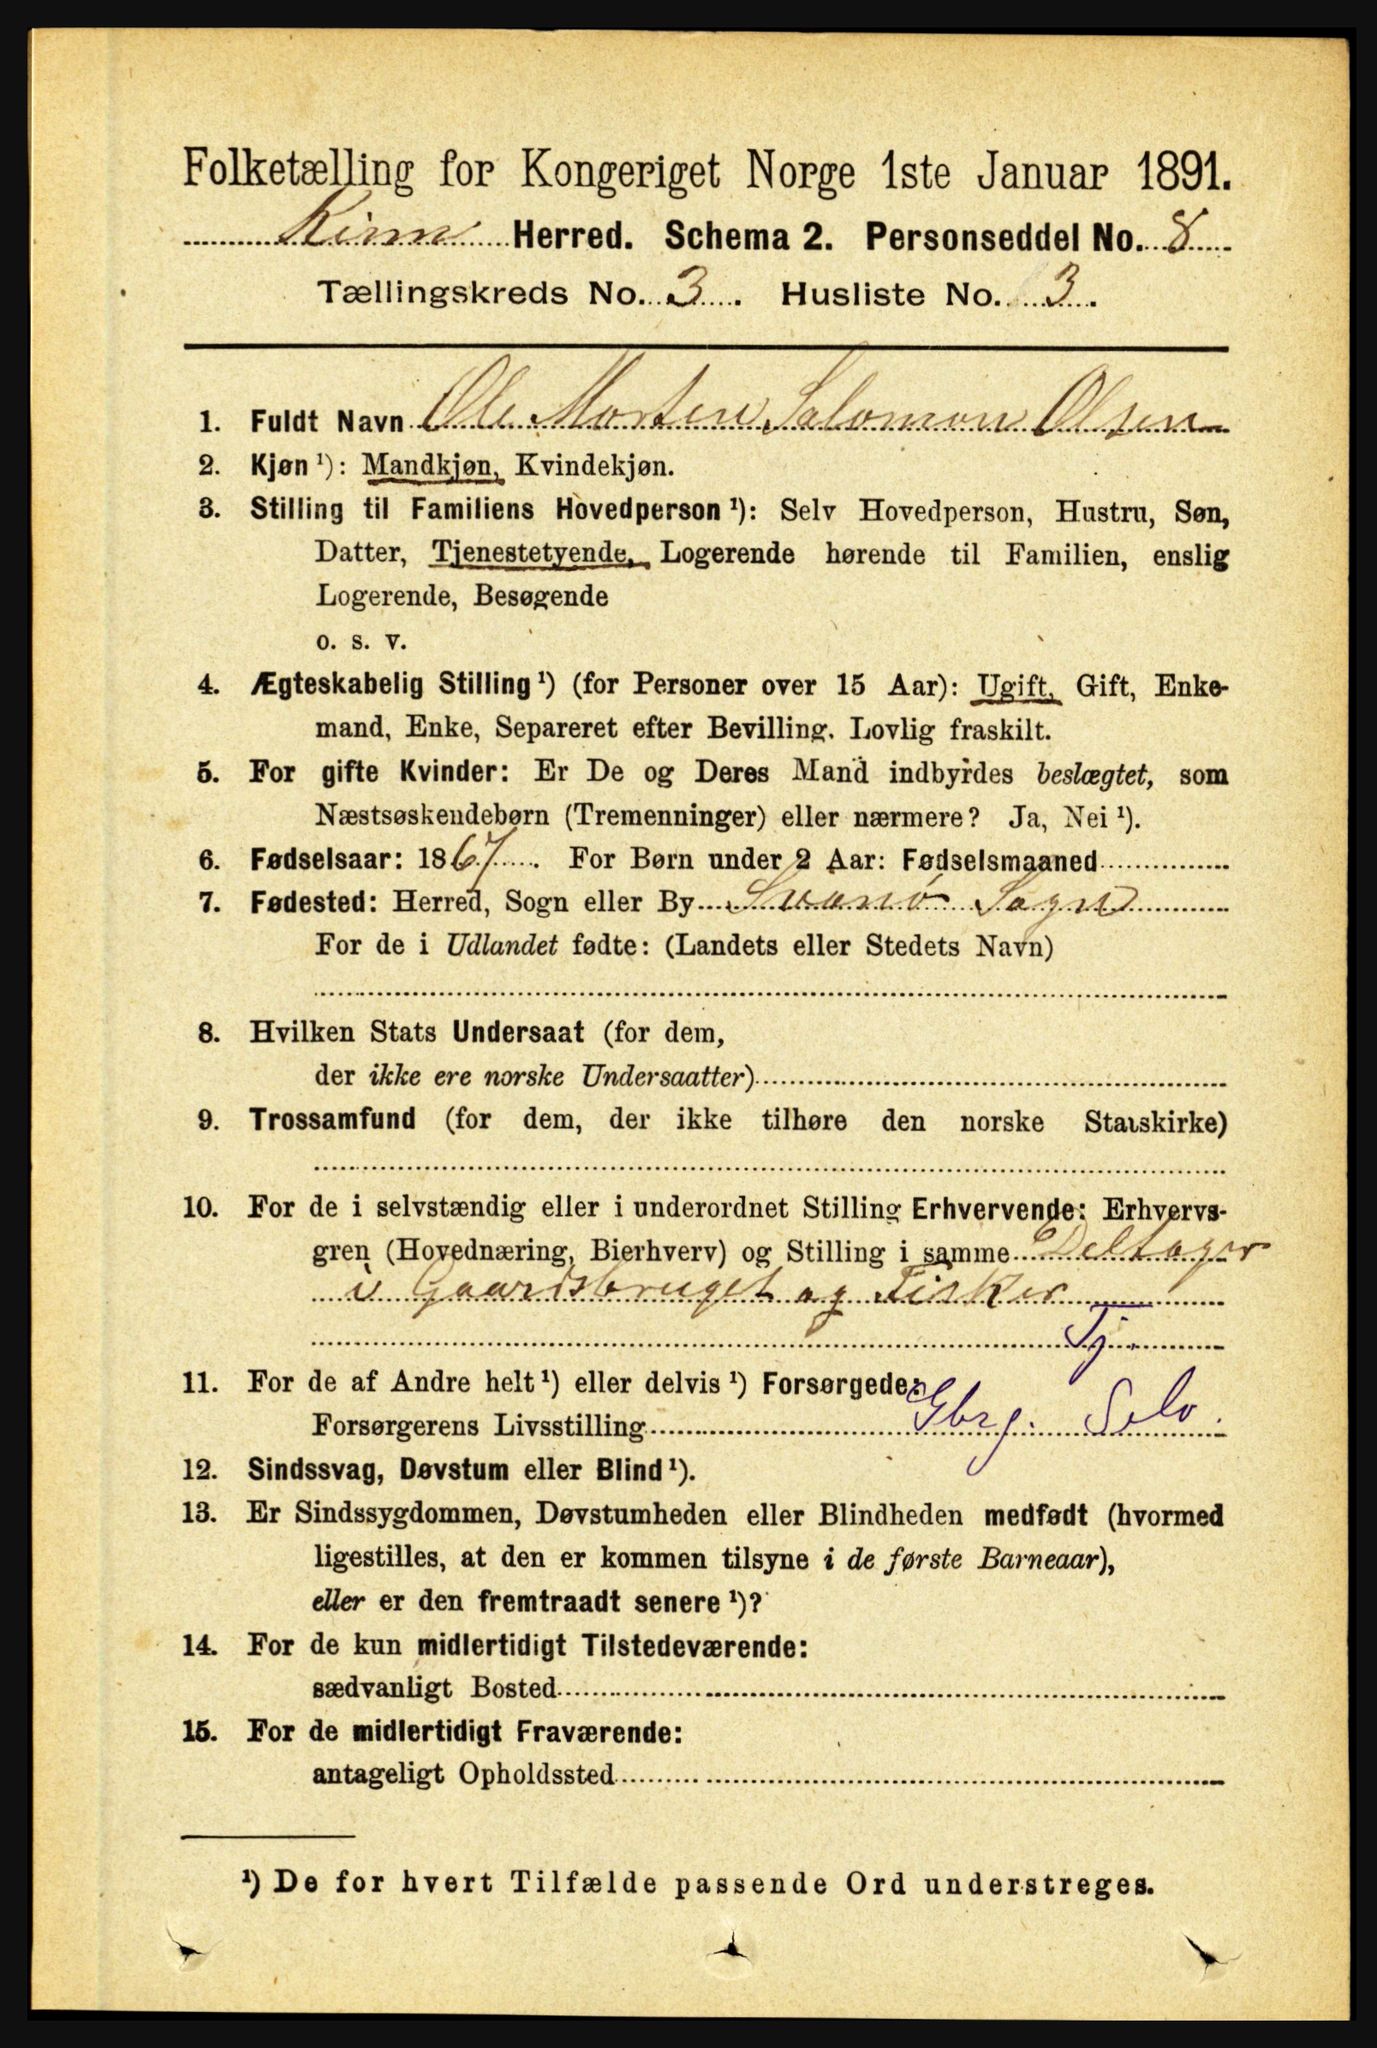 Folketælling for Kongeriget Norge 1ste Januar 1891.
Kinn Herred. Schema 2. Personseddel No. 8
Tællingskreds No. 3. Husliste No. 3.
1. Fuldt Navn Ole Morten Salomon Olsen
2. Kjøn ¹): Mandkjøn, Kvindekjøn.
3. Stilling til Familiens Hovedperson ¹): Selv Hovedperson, Hustru, Søn,
Datter, Tjenestetyende, Logerende hørende til Familien, enslig
Logerende, Besøgende
o. s. v.
4. Ægteskabelig Stilling ¹) (for Personer over 15 Aar): Ugift, Gift, Enke-
mand, Enke, Separeret efter Bevilling. Lovlig fraskilt.
5. For gifte Kvinder: Er De og Deres Mand indbyrdes beslægtet, som
Næstsøskendebørn (Tremenninger) eller nærmere? Ja, Nei ¹).
6. Fødselsaar: 1867. For Børn under 2 Aar: Fødselsmaaned
7. Fødested: Herred, Sogn eller By Svanø Sogn
For de i Udlandet fødte: (Landets eller Stedets Navn)
8. Hvilken Stats Undersaat (for dem,
der ikke ere norske Undersaatter)
9. Trossamfund (for dem, der ikke tilhøre den norske Statskirke)
10. For de i selvstændig eller i underordnet Stilling Erhvervende: Erhvervs-
gren (Hovednæring, Bierhverv) og Stilling i samme Deltager
i Gaardsbruget og Fisker
Tj.
11. For de af Andre helt ¹) eller delvis ¹) Forsørgede:
Forsørgerens Livsstilling Gbrg. Selv.
12. Sindssvag, Døvstum eller Blind ¹).
13. Er Sindssygdommen, Døvstumheden eller Blindheden medfødt (hvormed
ligestilles, at den er kommen tilsyne i de første Barneaar),
eller er den fremtraadt senere ¹)?
14. For de kun midlertidigt Tilstedeværende:
sædvanligt Bosted
15. For de midlertidigt Fraværende:
antageligt Opholdssted
¹) De for hvert Tilfælde passende Ord understreges.